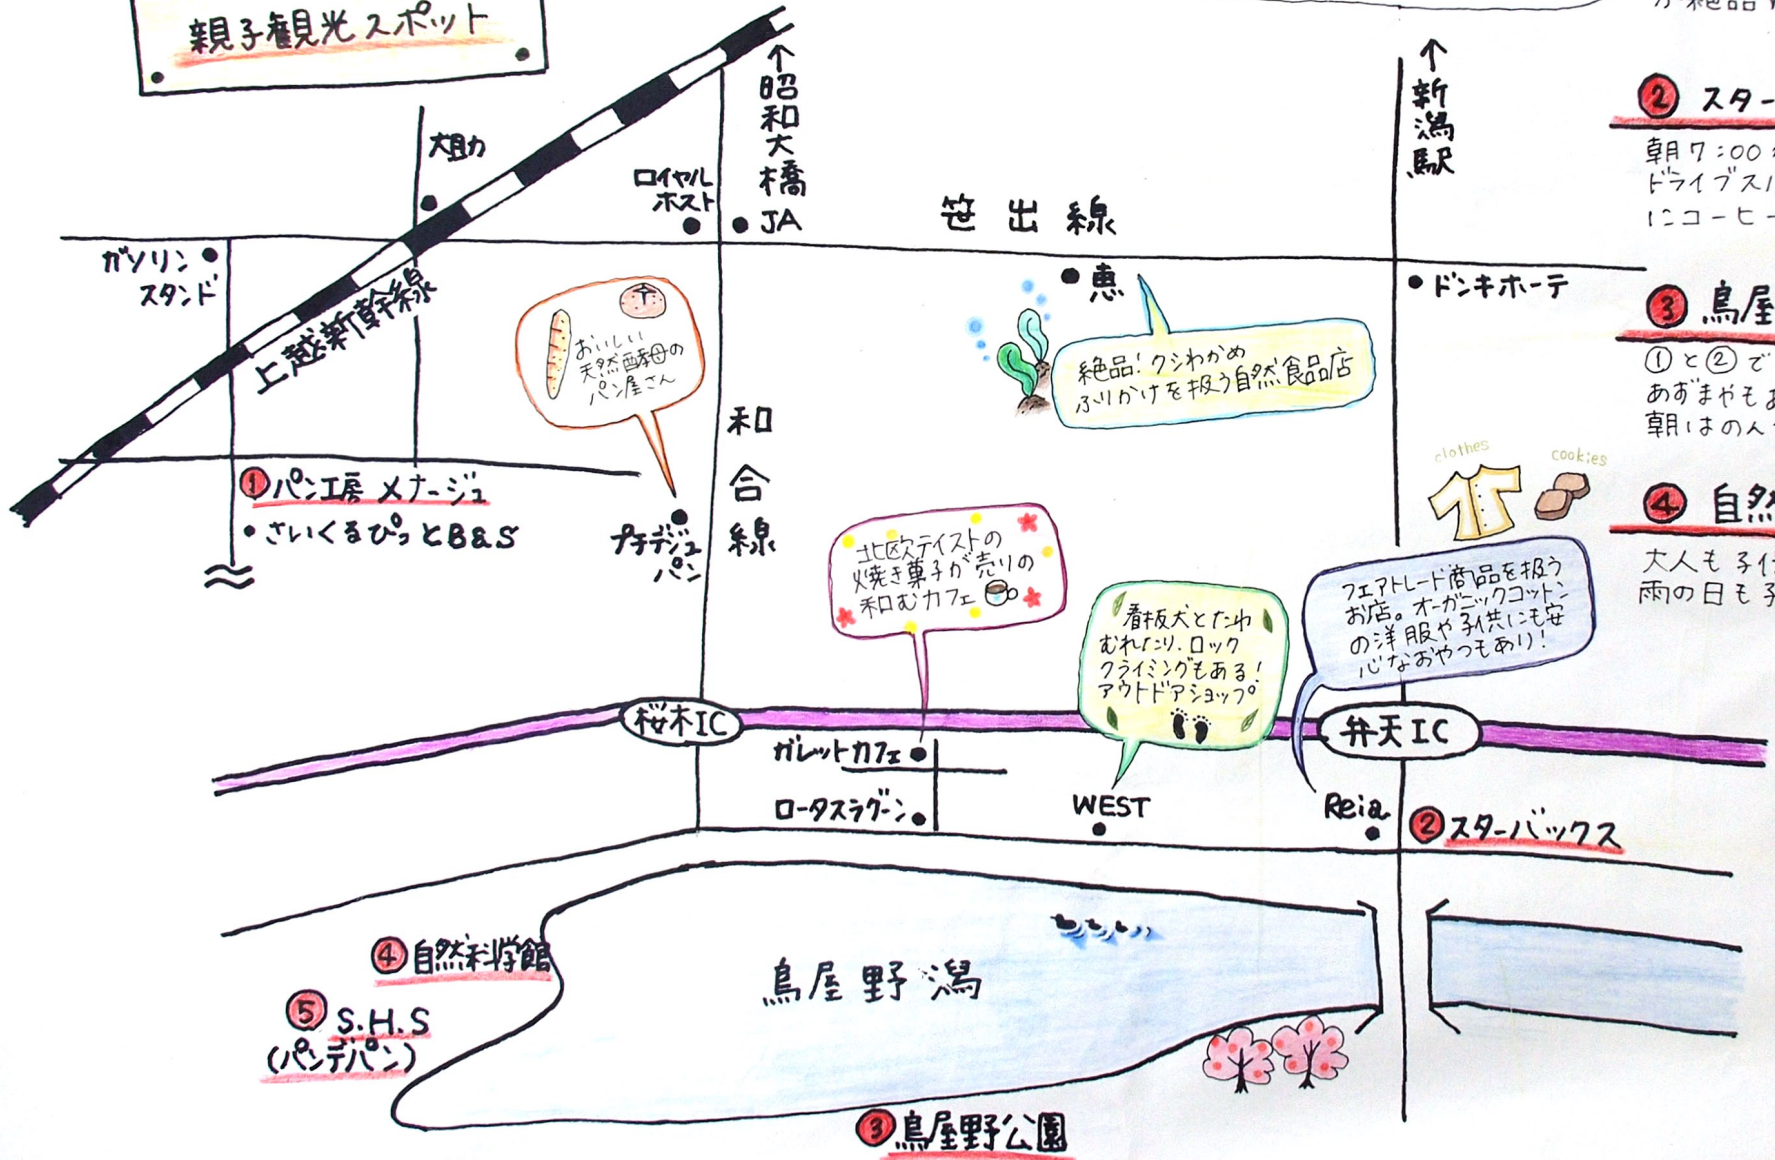 親子観光スポット
↑昭和大橋
↑新潟駅
大助
ロイヤル
ホスト
JA
笹出線
ガソリン
スタンド
上越新幹線
恵
ドンキホーテ
おいしい
天然酵母の
パン屋さん
絶品!クシわかめ
ふりかけを扱う自然食品店
和合線
①パン工房 メナージュ
・さいくるぴっとB&S
プチデジュ
パン
clothes
cookies
北欧テイストの
焼き菓子が売りの
和むカフェ
看板犬とたわ
むれたり、ロック
クライミングもある!
アウトドアショップ。
フェアトレード商品を扱う
お店。オーガニックコットン
の洋服や子供にも安
心なおやつもあり!
桜木IC
弁天IC
ガレットカフェ
ロータスラグーン
WEST
Reia
②スターバックス
④自然科学館
鳥屋野潟
⑤S.H.S
(パンデパン)
③鳥屋野公園
が絶品
②スター
朝7:00
ドライブス
にコーヒー
③鳥屋
①と②で
あずまやも
朝はのん
④自然
大人も子
雨の日も子